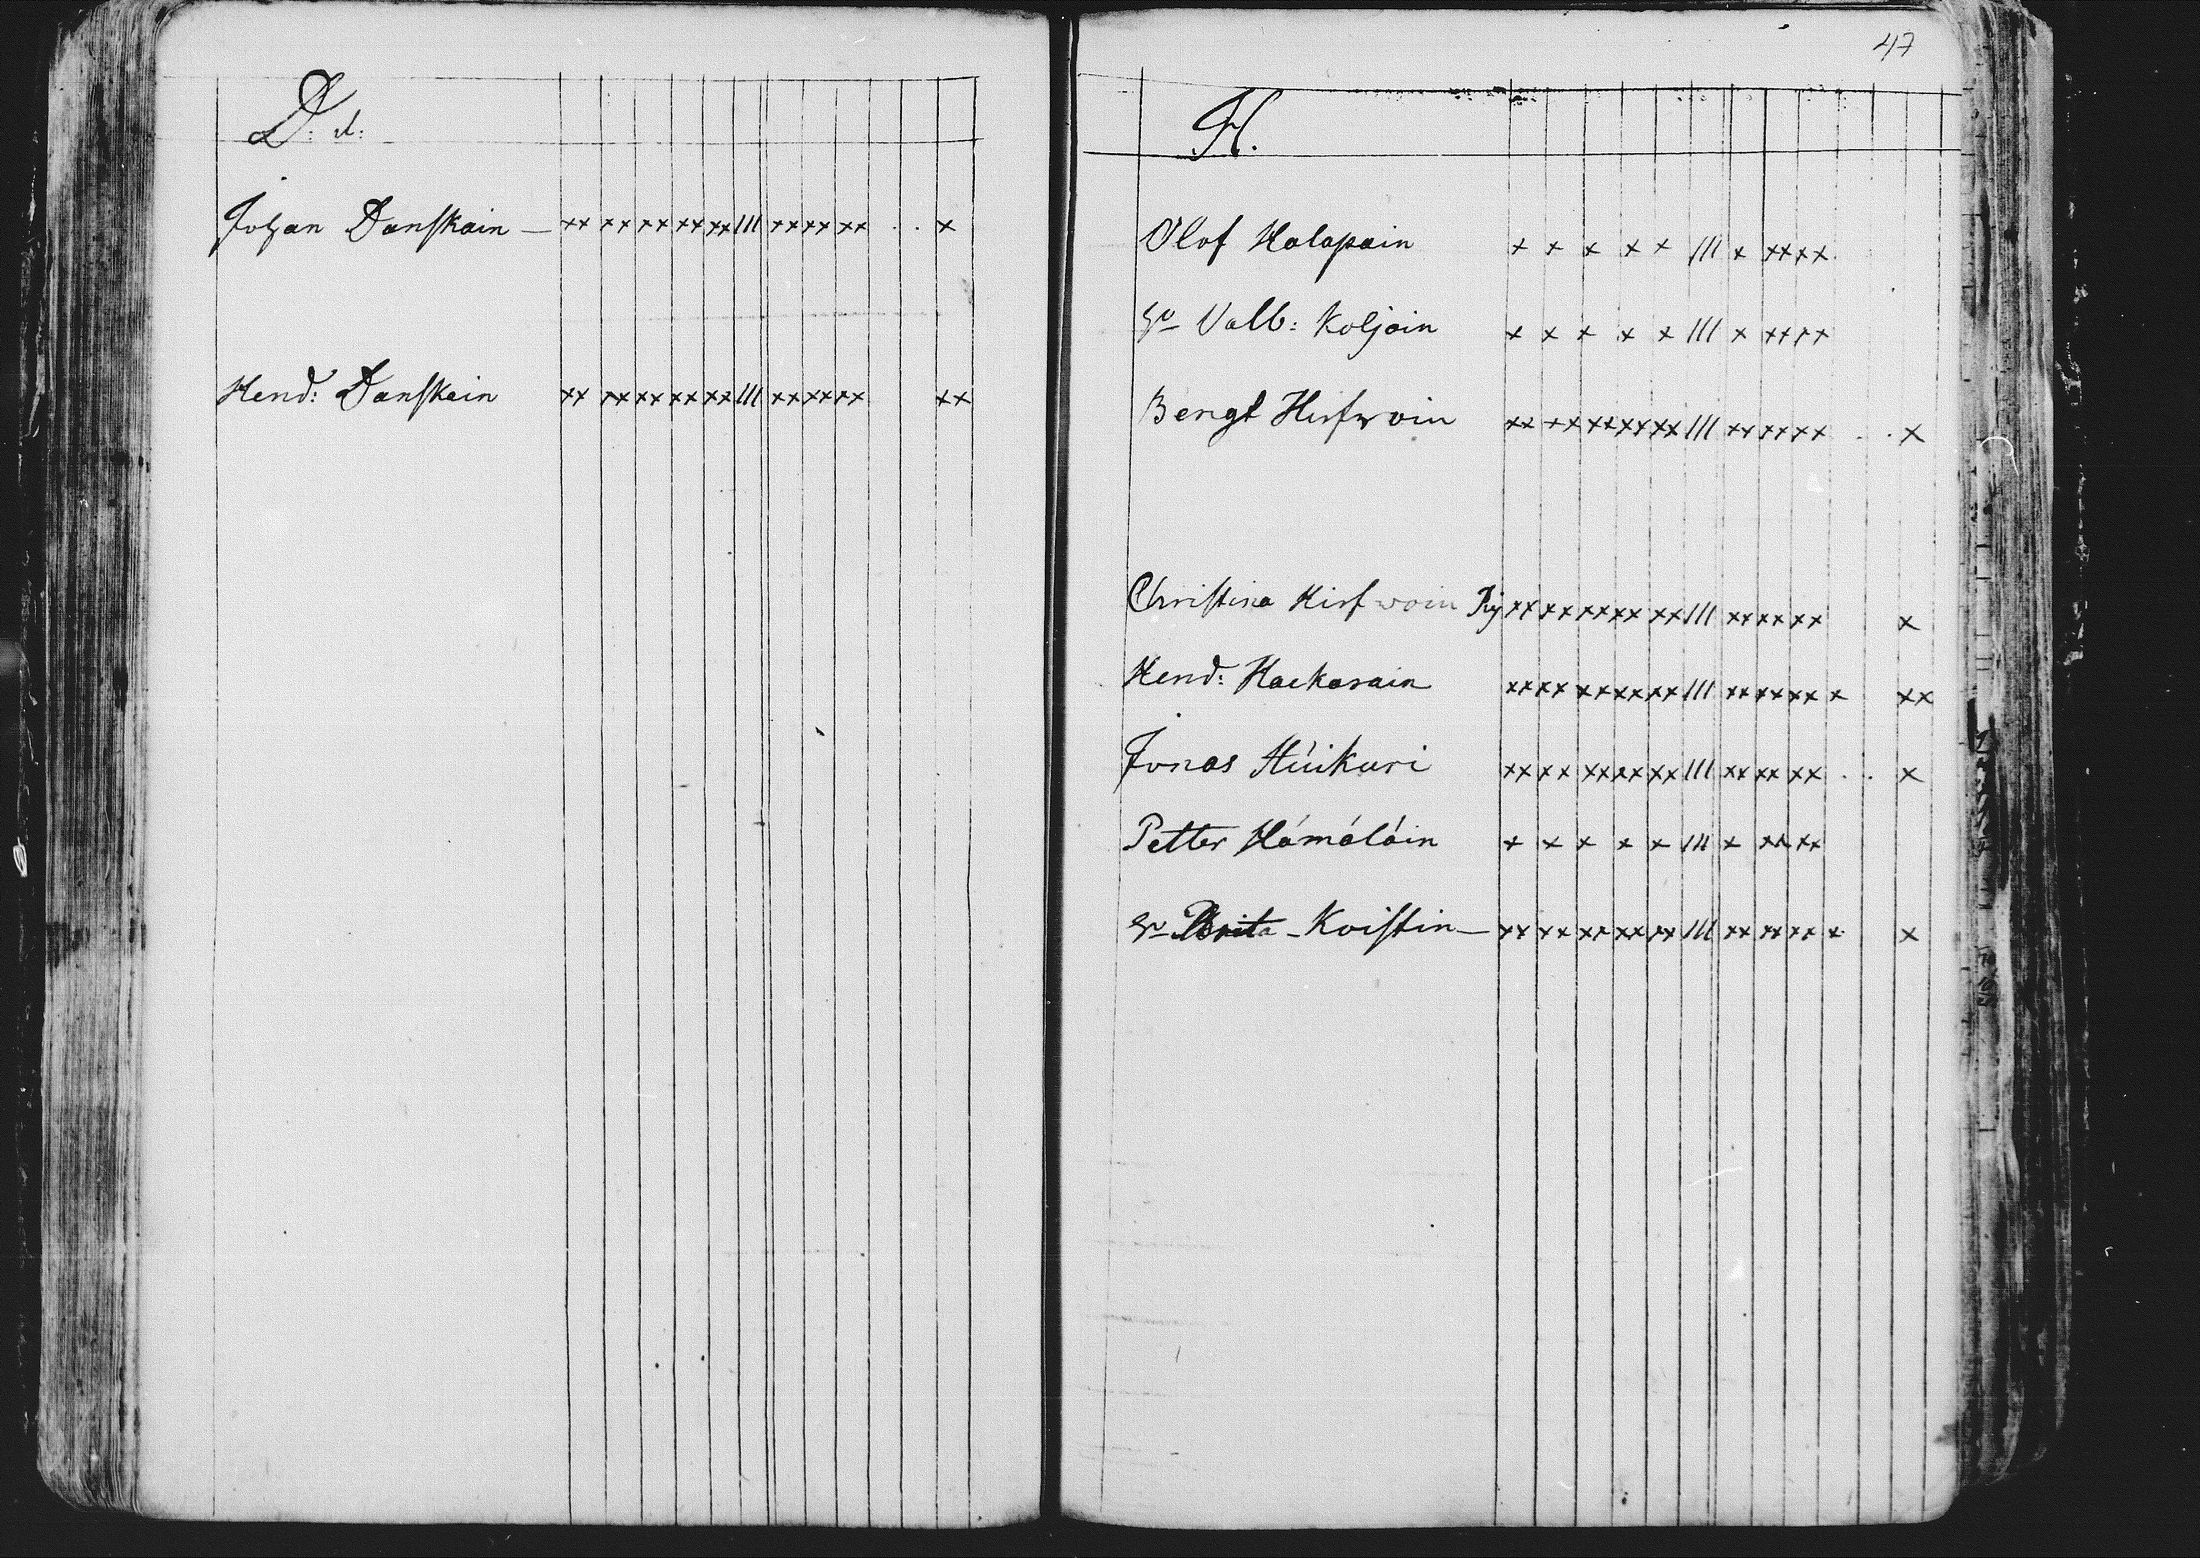 D: d:
Johan Danskain — xx xx xx xx xx III xx xx xx . . x
Hend: Danskain xx xx xx xx xx III xx xx xx xx
47
H.
Olof Halapain x x x x x III x xx xx
Hu Valb: Koljain x x x x x III x xx xx
Bengt Hirfwoin xx xx xx xx xx III xx xx xx . . x
Christina Hirfwoin Pig xx xx xx xx xx III xx xx xx x
Hend: Hackarain xx xx xx xx xx III xx xx xx x xx
Jonas Huikuri xx xx xx xx xx III xx xx xx . . x
Petter Hämäläin x x x x x III x xx xx
Hu Brita - Koistin — xx xx xx xx xx III xx xx xx x x